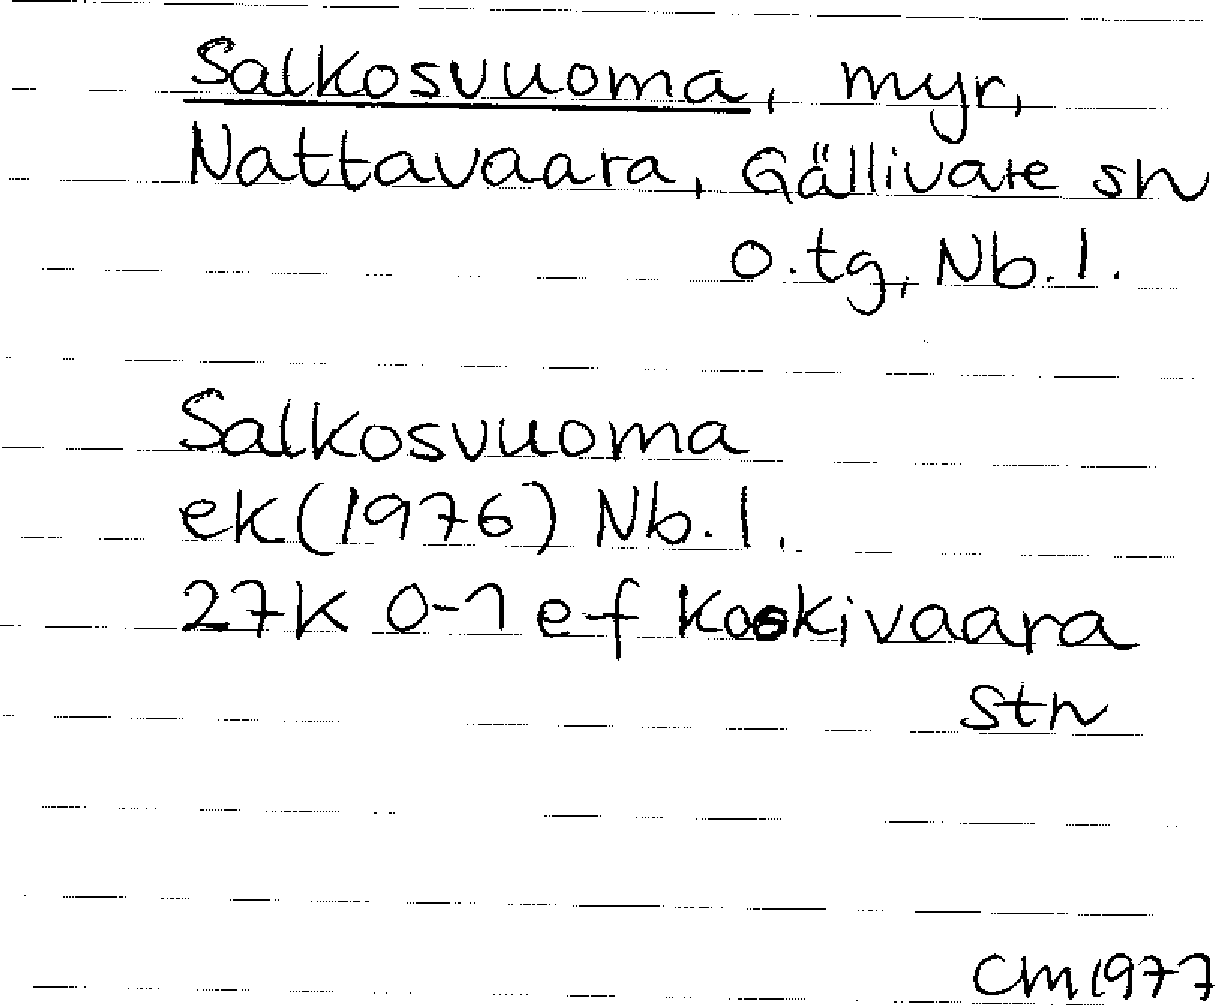 Salkosvuoma, myr,
Nattavaara, Gällivare sn
o.tg, Nb.l.
Salkosvuoma
ek(1976) Nb.l.
27K 0-1 e-f Koskivaara
stn
CM 1977